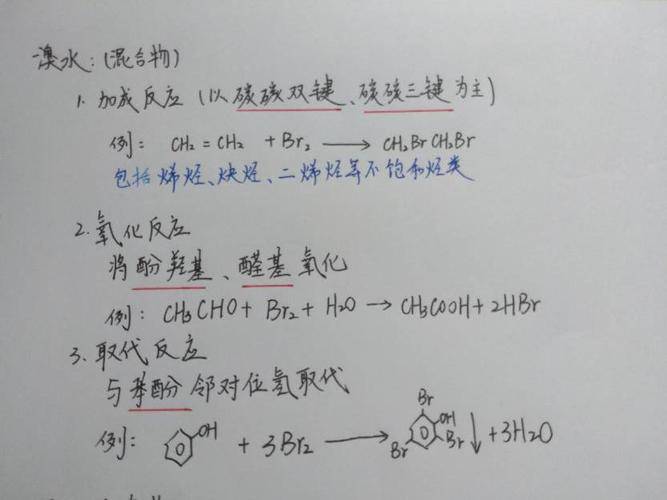 溴水:(混合物)
1. 加成反应(以碳碳双键、碳碳三键为主)
例: CH₂=CH₂ +Br₂ → CH₂BrCH₂Br
包括烯烃、炔烃、二烯烃等不饱和烃类
2. 氧化反应
将酚羟基、醛基氧化
例: CH₃CHO+ Br₂+ H₂O → CH₃COOH+2HBr
3. 取代反应
与苯酚邻对位氢取代
例: OH + 3Br₂ → Br OH Br Br ↓ +3H₂O